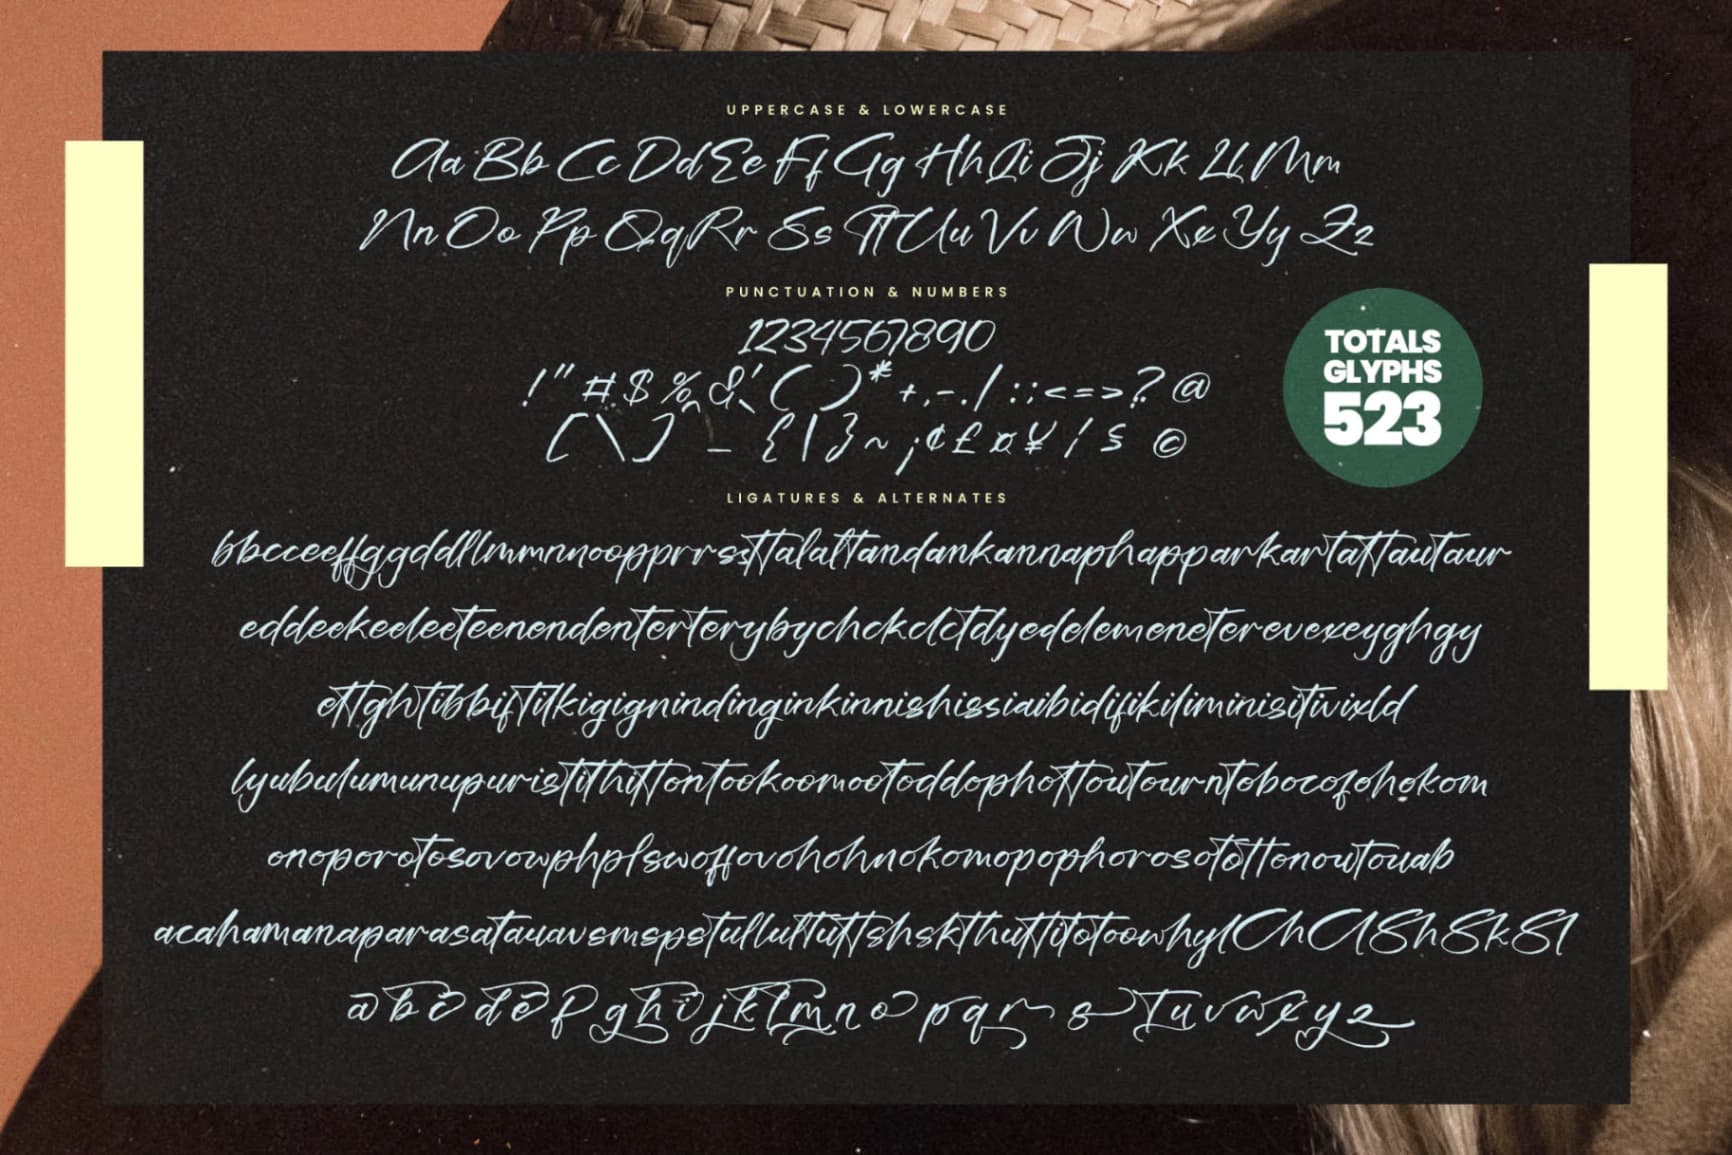 UPPERCASE & LOWERCASE
Aa Bb Cc Dd Ee Ff Gg Hh Ii Jj Kk Ll Mm
Nn Oo Pp Qq Rr Ss Tt Uu Vv Ww Xx Yy Zz
PUNCTUATION & NUMBERS
1234567890
! " # $ % & ' ( ) * + , - . / : ; < = > ? @
[ \ ] ^ _ ` { | } ~ ¡ ¢ £ ¤ ¥ / § ©
TOTALS
GLYPHS
523
LIGATURES & ALTERNATES
bbcceeffggddllmmnnoopprrssttalaltandankannaphapparkartattautaur
eddeekeeleeteenendenterterybychckclctdyedelemeneterevexeyghgy
ettghtibbiftilkigignindinginkinnishissiaibidifikiliminisitwixld
lyubulumunupuristithittontookoomootoddophottoutourntobocofohokom
onoporotosovowphplswoffovohohnokomopophorosotottonoutouab
acahamanaparasatauavsmspstullultuttshskthuttitotoowhylChClShSkSl
a b c d e f g h i j k l m n o p q r s t u v w x y z